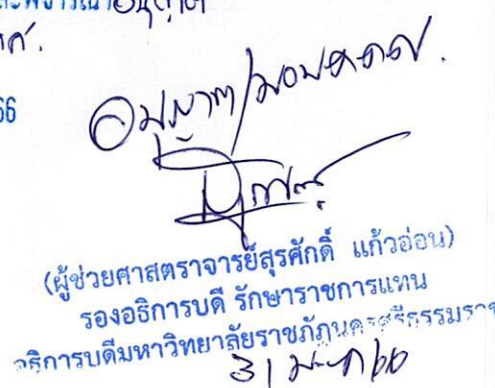 ละพิจารณาอนุญาต
66
อนุญาต/มอบ
(ผู้ช่วยศาสตราจารย์สุรศักดิ์ แก้วอ่อน)
รองอธิการบดี รักษาราชการแทน
อธิการบดีมหาวิทยาลัยราชภัฏนครศรีธรรมราช
31 66